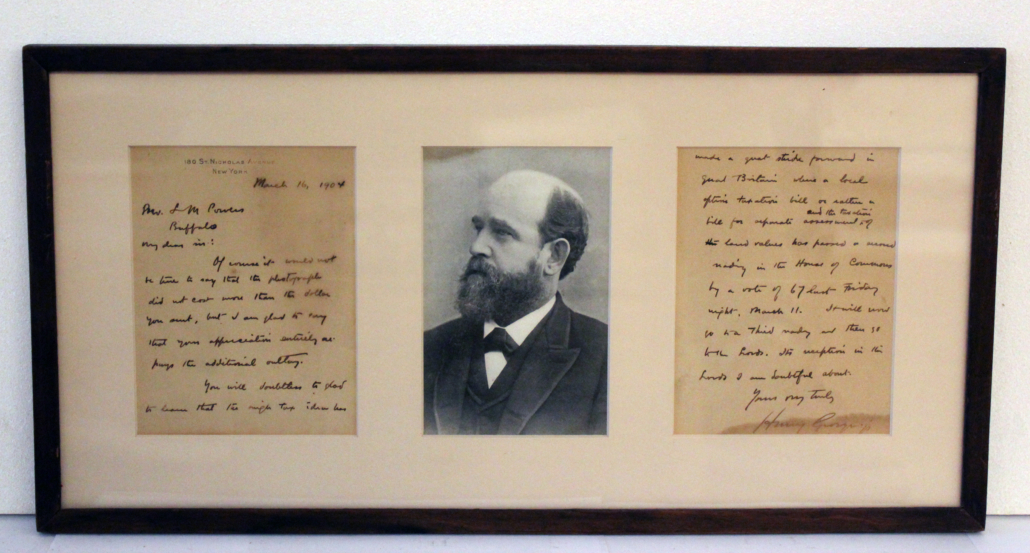 180 St. Nicholas Avenue
New York
March 16, 1904
Mr. L M Powers
Buffalo
My dear sir:
Of course it would not
be true to say that the photograph
did not cost more than the dollar
you sent, but I am glad to say
that your appreciation entirely re-
pays the additional outlay.
You will doubtless be glad
to learn that the single tax idea has
made a great stride forward in
Great Britain where a local
option taxation bill or rather a
bill for separate assessment of
and the taxation
the land values has passed a second
reading in the House of Commons
by a vote of 67 last Friday
night, March 11. It will now
go to a Third reading and then go
to the Lords. Its reception in the
Lords I am doubtful about.
Yours very truly
Henry George Jr